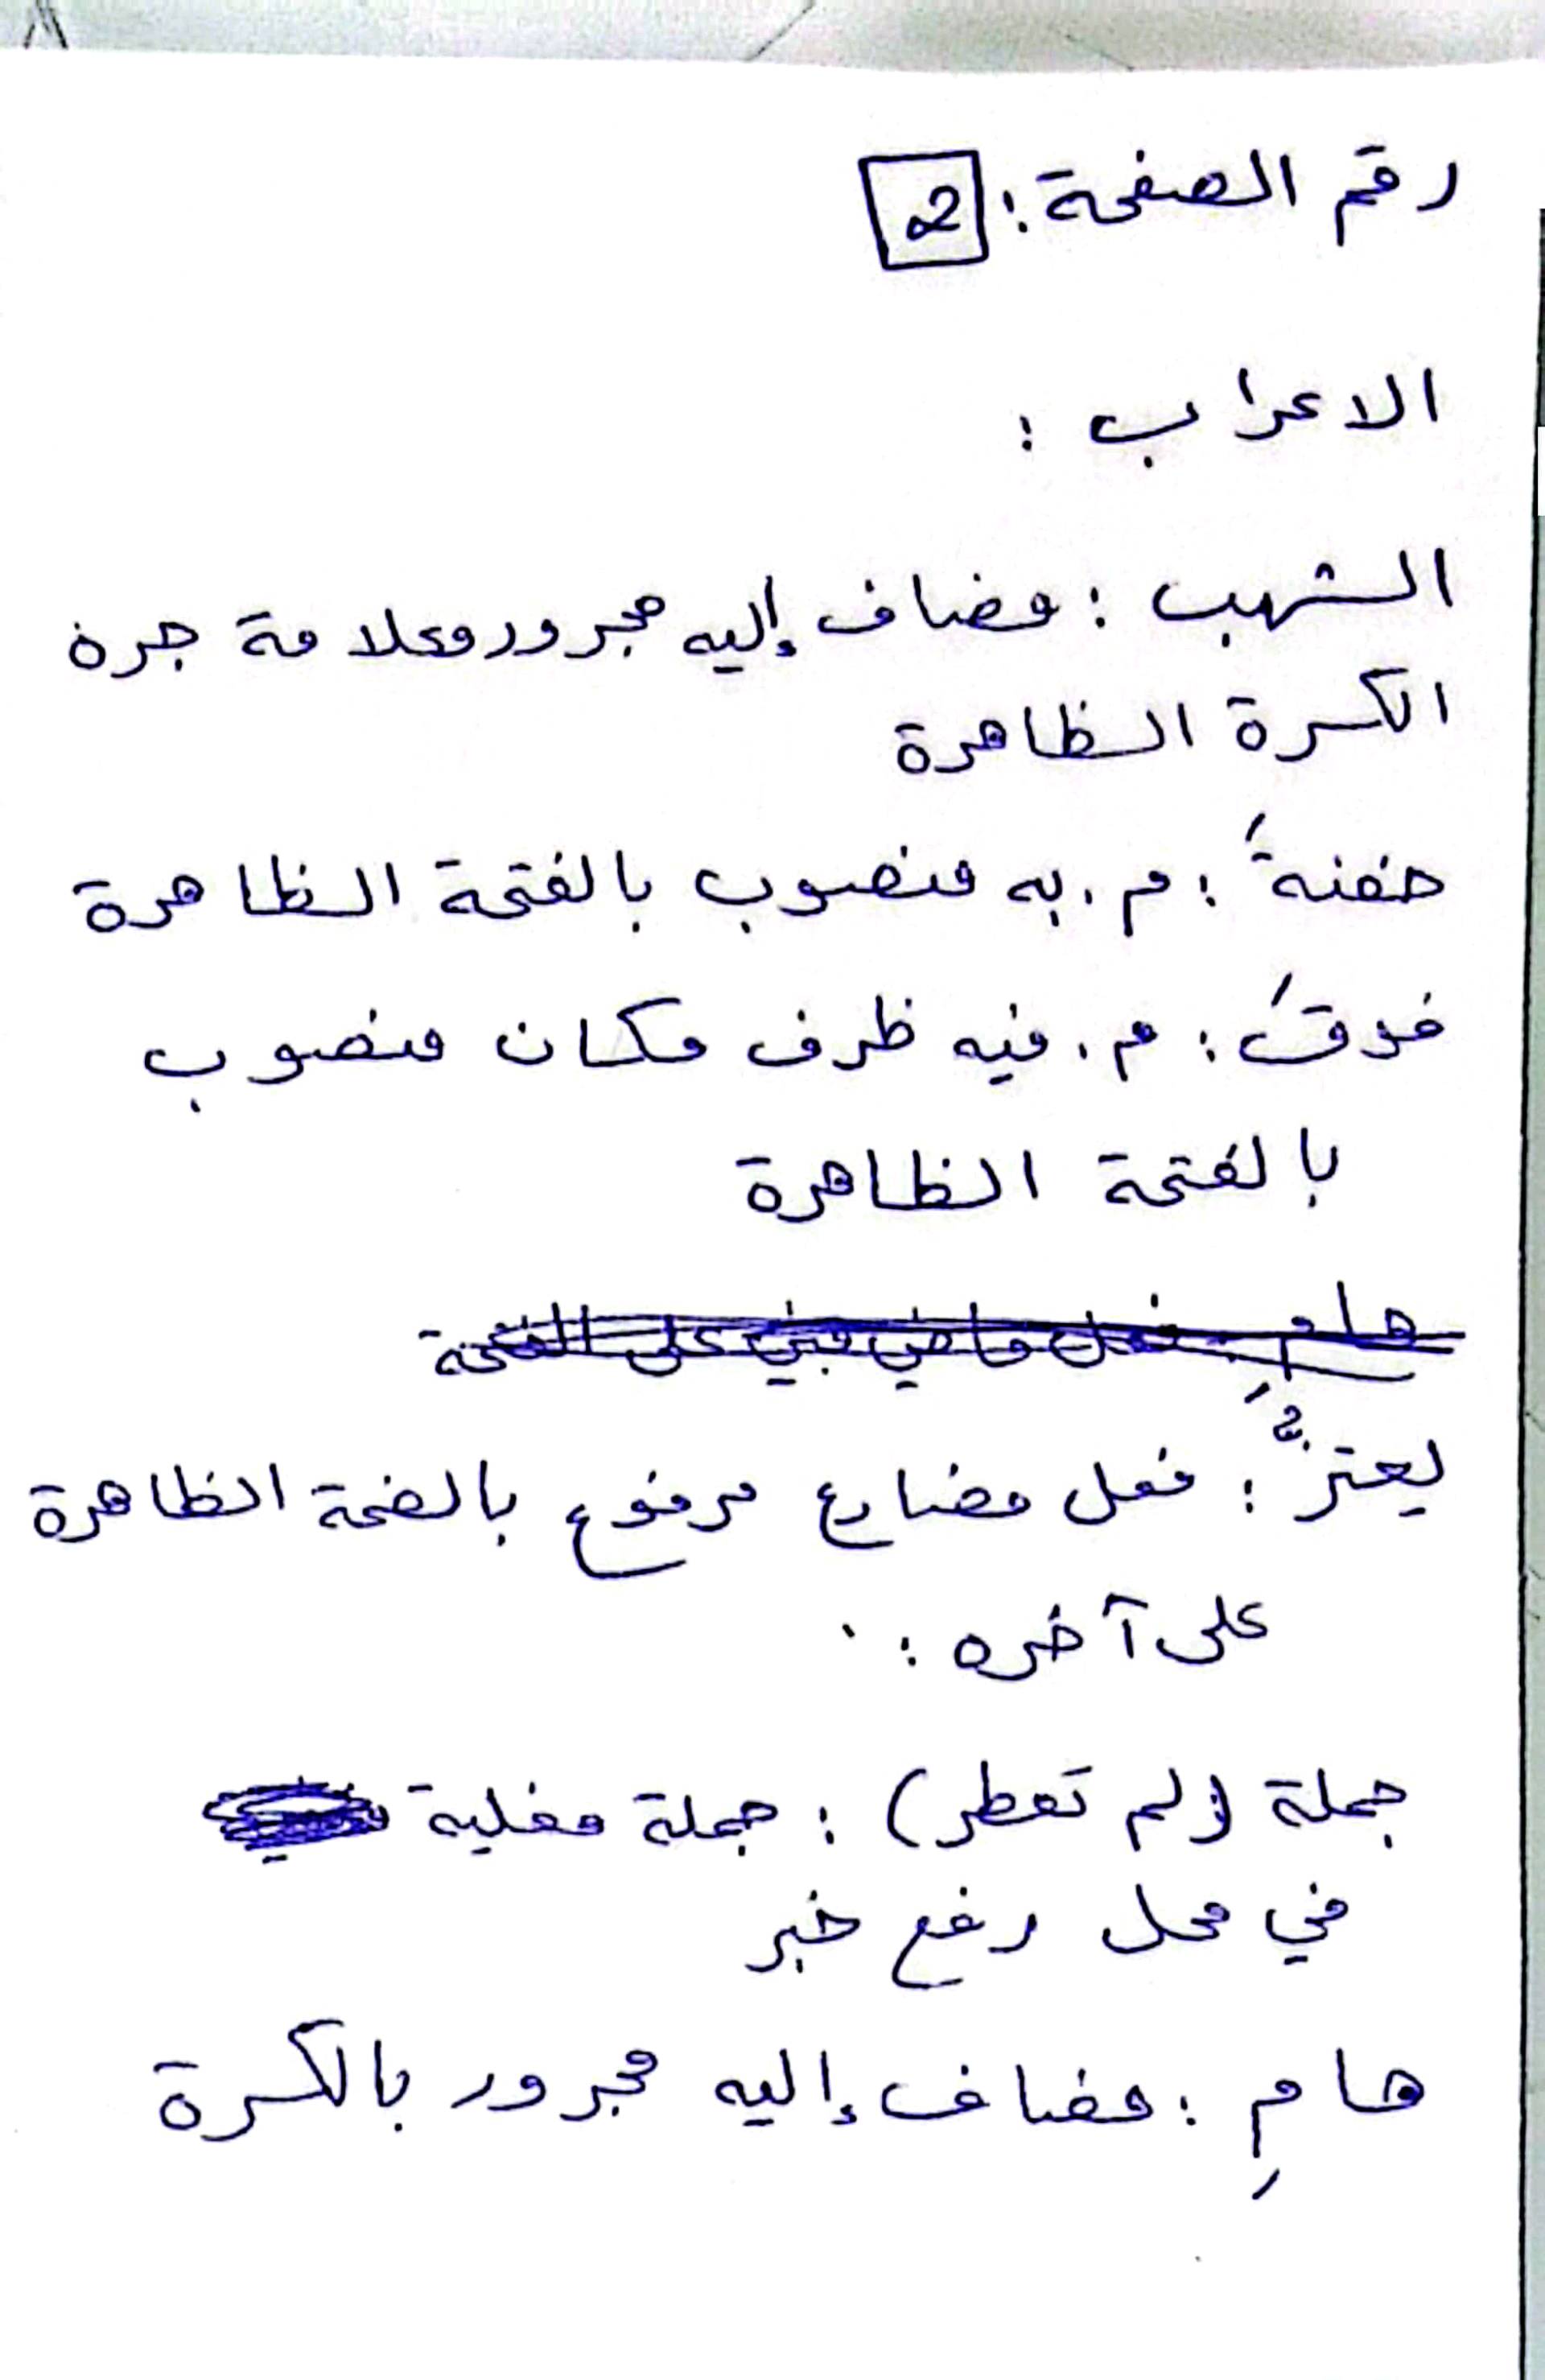 رقم الصفحة: 2
الاعراب :
الشهب : مضاف إليه مجرور وعلامة جره
الكسرة الظاهرة
حفنةَ : م . به منصوب بالفتحة الظاهرة
فوقَ : م . فيه ظرف مكان منصوب
بالفتحة الظاهرة
هامِ : فعل ماضي مبني على الفتحة
يعتزُّ : فعل مضارع مرفوع بالضمة الظاهرة
على آخره :
جملة (لم تمطر) : جملة فعلية
في محل رفع خبر
هامِ : مضاف إليه مجرور بالكسرة